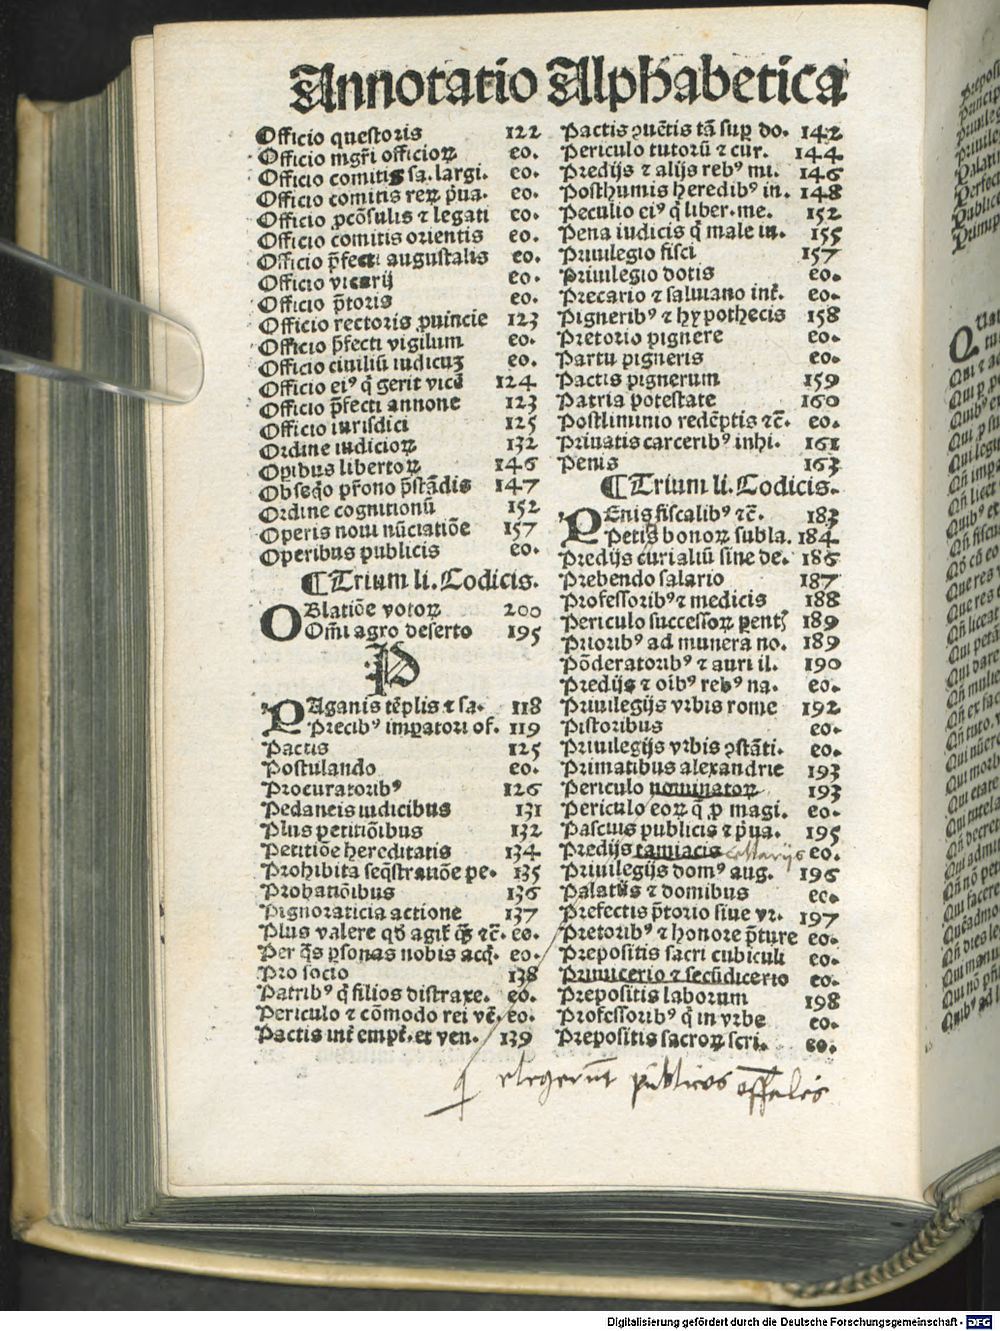 Annotatio Alphabetica
Officio questoris 122
Officio mgr̃i officioꝝ eo.
Officio comitis sa. largi. eo.
Officio comitis reꝝ p̃ua. eo.
Officio ꝓcõsulis ⁊ legati eo.
Officio comitis orientis eo.
Officio p̃fecti augustalis eo.
Officio vicarij eo.
Officio p̃toris eo.
Officio rectoris ꝓuincie 123
Officio p̃fecti vigilum eo.
Officio ciuiliũ iudicuꝫ eo.
Officio eiꝰ q̃ gerit vicẽ 124
Officio p̃fecti annone 123
Officio iurisdici 125
Ordine iudicioꝝ 132
Opibus libertoꝝ 146
Obseq̃o pr̃ono p̃stãdis 147
Ordine cognitionũ 152
Operis noui nũciatiõe 157
Operibus publicis eo.
¶ Trium li. Codicis.
OBlatiõe votoꝝ 200
Om̃i agro deserto 195
P
PAganis tẽplis ⁊ sa. 118
Precibꝰ imꝑatori of. 119
Pactis 125
Postulando eo.
Procuratoribꝰ 126
Pedaneis iudicibus 131
Plus petitiõibus 132
Petitiõe hereditatis 134
Prohibita seq̃stratiõe pe. 135
Probatiõibus 136
Pignoraticia actione 137
Plus valere qđ agit̃ q̃ꝫ ⁊c̃. eo.
Per q̃s ꝑsonas nobis acq̃. eo.
Pro socio 138
Patribꝰ q̃ filios distraxe. eo.
Periculo ⁊ cõmodo rei vẽ. eo.
Pactis int̃ empt̃. et ven. 139
Pactis ꝯuẽtis tã suꝑ do. 142
Periculo tutorũ ⁊ cur. 144
Predijs ⁊ alijs rebꝰ mi. 146
Posthumis heredibꝰ in. 148
Peculio eiꝰ q̃ liber. me. 152
Pena iudicis q̃ male iu. 155
Priuilegio fisci 157
Priuilegio dotis eo.
Precario ⁊ saluiano int̃. eo.
Pigneribꝰ ⁊ hypothecis 158
Pretorio pignere eo.
Partu pigneris eo.
Pactis pignerum 159
Patria potestate 160
Postliminio redẽptis ⁊c̃. eo.
Priuatis carceribꝰ inhi. 161
Penis 163
¶ Trium li. Codicis.
PEnis fiscalibꝰ ⁊c̃. 183
Petis bonoꝝ subla. 184
Predijs curialiũ sine de. 186
Prebendo salario 187
Professoribꝰ ⁊ medicis 188
Periculo successoꝝ ꝑent̃ 189
Prioribꝰ ad munera no. 189
Põderatoribꝰ ⁊ auri il. 190
Predijs ⁊ oĩbꝰ rebꝰ na. eo.
Priuilegijs vrbis rome 192
Pistoribus eo.
Priuilegijs vrbis ꝯstãti. eo.
Primatibus alexandrie 193
Periculo nominatoꝝ 193
Periculo eoꝝ q̃ ꝓ magi. eo.
Pascuis publicis ⁊ p̃ua. 195
Predijs tamiacis eo.
Priuilegijs domꝰ aug. 196
Palatijs ⁊ domibus eo.
Prefectis p̃torio siue vr. 197
Pretoribꝰ ⁊ honore p̃ture eo.
Prepositis sacri cubiculi eo.
Primicerio ⁊ secũdicerio eo.
Prepositis laborum 198
Professoribꝰ q̃ in vrbe eo.
Prepositis sacroꝝ scri. eo.
Digitalisierung gefördert durch die Deutsche Forschungsgemeinschaft - DFG